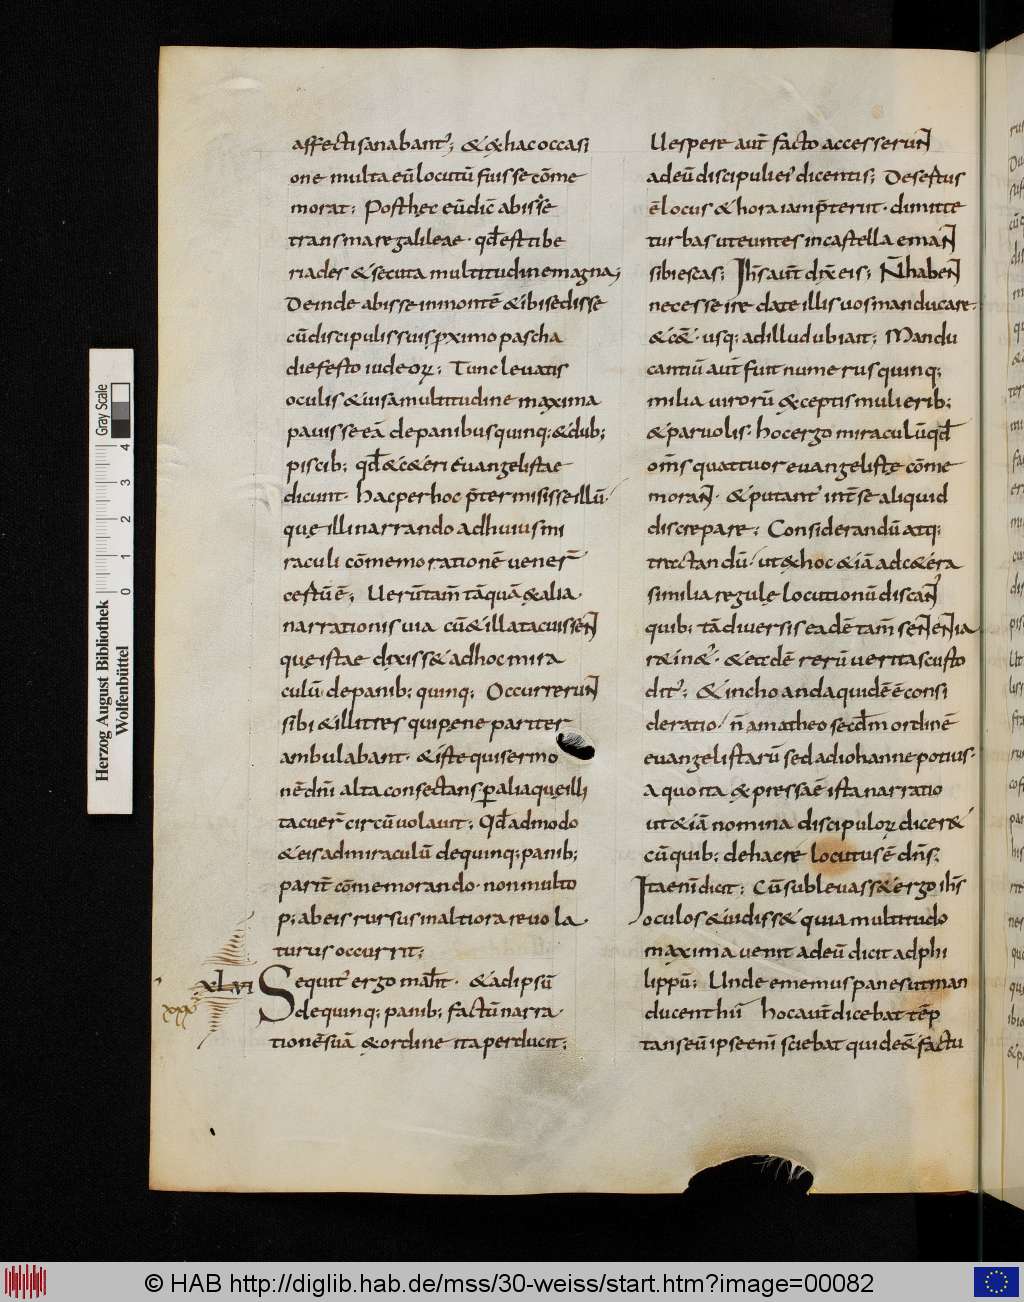 affectisanabant᷑; & exhacoccasi
one multa eū locutū fuisse cōme
morat; Posthec eū dic̄ abisse
transmaregalileae · qđ esttibe
riades & secuta multitudinemagna;
Deinde abisse inmontē & ibisedisse
cū discipulissuis ꝓximo pascha
diefesto iudeoꝝ; Tunc levatis
oculis & uisa multitudine maxima
pauisse eā depanibus quinq; & duob;
piscib; qđ & cęteri euangelistae
dicunt · hac perhoc p̄termisisse illū·
quę illi narrando adhuius mi
raculi cōmemorationē uener̄
cestū ē; Uerūtam̄ tāquā & alia
narrationis uia cū & illa tacuissen̄
quę istae dixiss& adhoc mira
culū depanib; quinq; Occurrerun̄
sibi & illi tres qui pene pariter
ambulabant · & iste qui sermo
nē dn̄i alta consectans ꝑ alia quę illi
tacuer̄ circūuolauit; Qđ admodo
& eis admiraculū dequinq; panib;
parit̄ cōmemorando · non multo
p; ab eis rursus inaltiora reuola
turus occurrit;
XLVI
Sequit᷑ ergo math̄ · & adipsū
xxx
dequinq; panib; factū narra
tionē suā ex ordine ita perducit;
Uespere aut̄ facto accesserun̄
adeū discipuli ei᷑ dicentis; Desertus
ē locus & hora iam p̄terit · dimitte
turbas ut euntes incastella eman̄
sibi escas; Ihs̄ aut̄ dix̄ eis; N̄ haben̄
necesse ire date illis uos manducare·
& c̄& · usq; ad illud ubi ait; Mandu
cantiū aut̄ fuit numerus quinq;
milia uirorū exceptis mulierib;
& paruolis · hoc ergo miraculū qđ
om̄s quattuor euangeliste cōme
moran̄ · & putant᷑ int̄ se aliquid
discrepare; Considerandū atq;
tractandū / ut ex hoc & iā ad cętera
similia regulę locutionū discan̄
quib; tā diuersis eadē tam̄ sen̄en̄ia
r&in&᷑ · & eadē rerū ueritas custo
dit᷑; & inchoanda quidē ē consi
deratio / n̄ a matheo secd̄m ordinē
euangelistarū sed ad iohanne potius·
a quo ita expressa ē ista narratio
ut & iā nomina discipuloꝝ dicer&
cū quib; dehac re locutus ē dn̄s;
Ita enī dicit; Cū subleuass& ergo ihs̄
oculos & uidiss& quia multitudo
maxima uenit ad eū dicit ad phi
lippū; Unde ememus panes ut man
ducent hii hoc aut̄ dicebat tēp
tans eū ipse enī sciebat quid e&̄ factu
Herzog August Bibliothek
Wolfenbüttel
Gray Scale
0 1 2 3 4
© HAB http://diglib.hab.de/mss/30-weiss/start.htm?image=00082